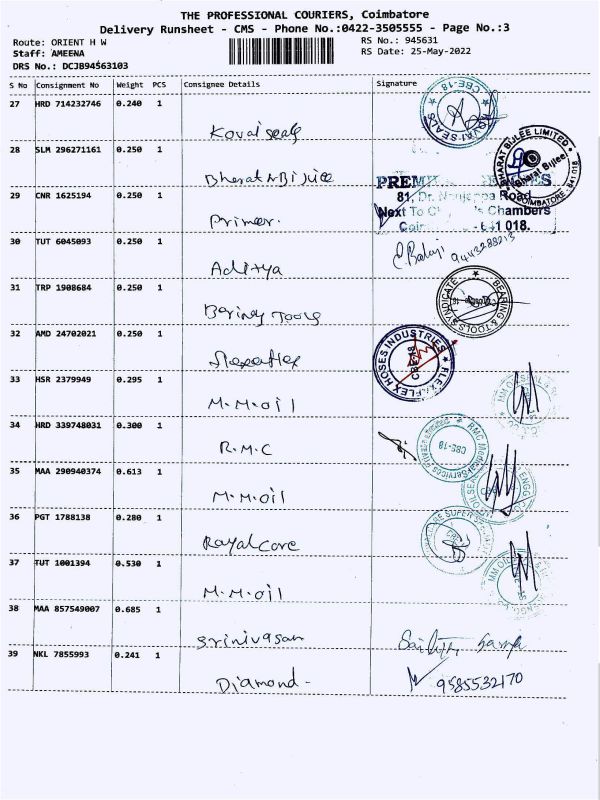 THE PROFESSIONAL COURIERS, Coimbatore
Delivery Runsheet - CMS - Phone No.:0422-3505555 - Page No.:3
Route: ORIENT H W
Staff: AMEENA
DRS No.: DCJB94563103
RS No.: 945631
RS Date: 25-May-2022
S No Consignment No Weight PCS Consignee Details Signature
27 HRD 714232746 0.240 1
Kovai seals
KOVAI SEALS CBE-18
28 SLM 296271161 0.250 1
BHARAT BIJLEE LIMITED
Bharat Bijlee
COIMBATORE - 641 018.
29 CNR 1625194 0.250 1
Primer.
81, Dr. Nanjappa Road
Next To Chambers
641 018.
30 TUT 6045093 0.250 1
Aditya
C. Balaji 9443288213
31 TRP 1908684 0.250 1
Bering Tools
BEARING & TOOLS SYNDICATE
32 AMD 24702021 0.250 1
FLEX HOSES INDUSTRIES
33 HSR 2379949 0.295 1
M.M.oil
34 HRD 339748031 0.300 1
R.M.C
RMC Medical Services Private Limited
CBS-18
35 MAA 290940374 0.613 1
M.M.oil
36 PGT 1788138 0.280 1
Royal Core
37 TUT 1001394 0.530 1
M.M.oil
38 MAA 857549007 0.685 1
Srinivasan
39 NKL 7855993 0.241 1
Diamond-
9585532170